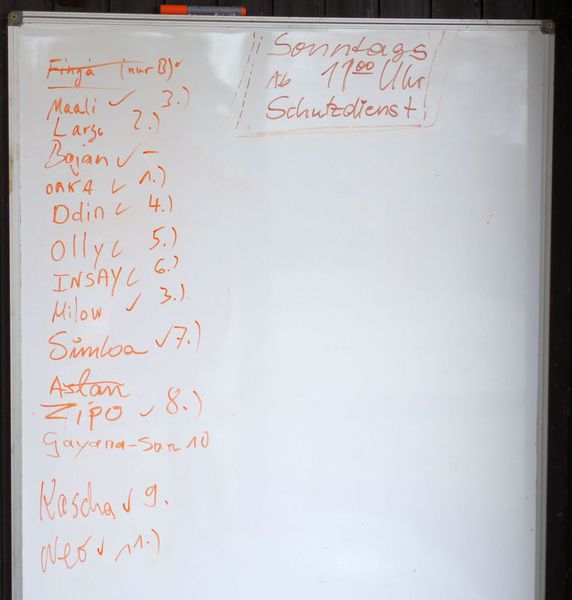 Finja (nur B)
Maali ✓ 3.)
Largo 2.)
Bojan ✓ –
ORKA ✓ 1.)
Odin ✓ 4.)
Olly ✓ 5.)
INSAY ✓ 6.)
Milow ✓ 3.)
Simba ✓ 7.)
Aslan
ZIPO ✓ 8.)
Gayana-San 10
Kascha ✓ 9.
Neo ✓ 11.)
Sonntags
Ab 11⁰⁰ Uhr
Schutzdienst